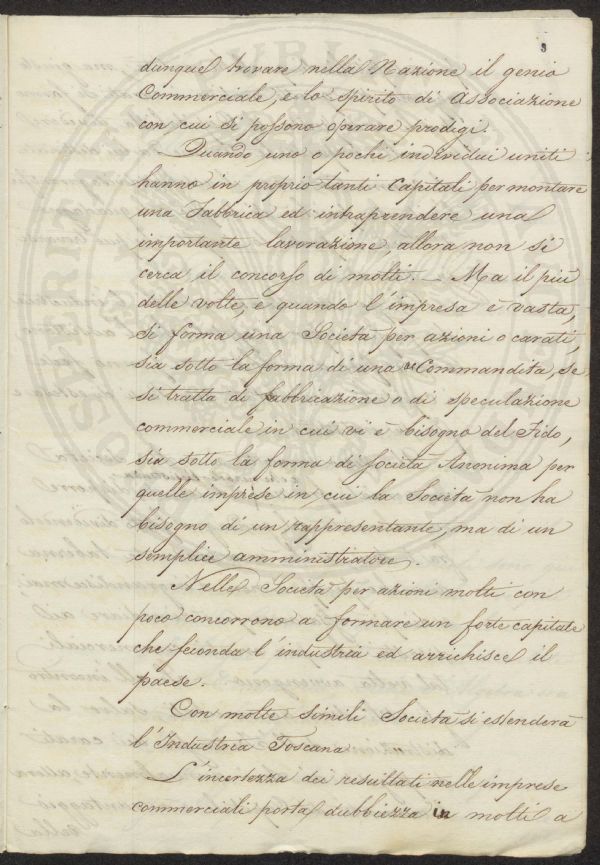 9
dunque trovare nella Nazione il genio
Commerciale, e lo spirito di Associazione
con cui si possono operare prodigi.
Quando uno o pochi individui uniti
hanno in proprio tanti Capitali per montare
una Fabbrica ed intraprendere una
importante lavorazione, allora non si
cerca il concorso di molti. _ Ma il più
delle volte, e quando l'impresa è vasta,
si forma una Società per azioni o carati,
sia sotto la forma di una Commandita, se
si tratta di fabbricazione o di speculazione
commerciale in cui vi è bisogno del Fido,
sia sotto la forma di società Anonima per
quelle imprese in cui la Società non ha
bisogno di un rappresentante, ma di un
semplice amministratore.
Nelle Società per azioni molti con
poco concorrono a formare un forte capitale
che feconda l'industria ed arrichisce il
paese.
Con molte simili Società si estenderà
l'Industria Toscana
L'incertezza dei resultati nelle imprese
commerciali porta dubbiezza in molti a